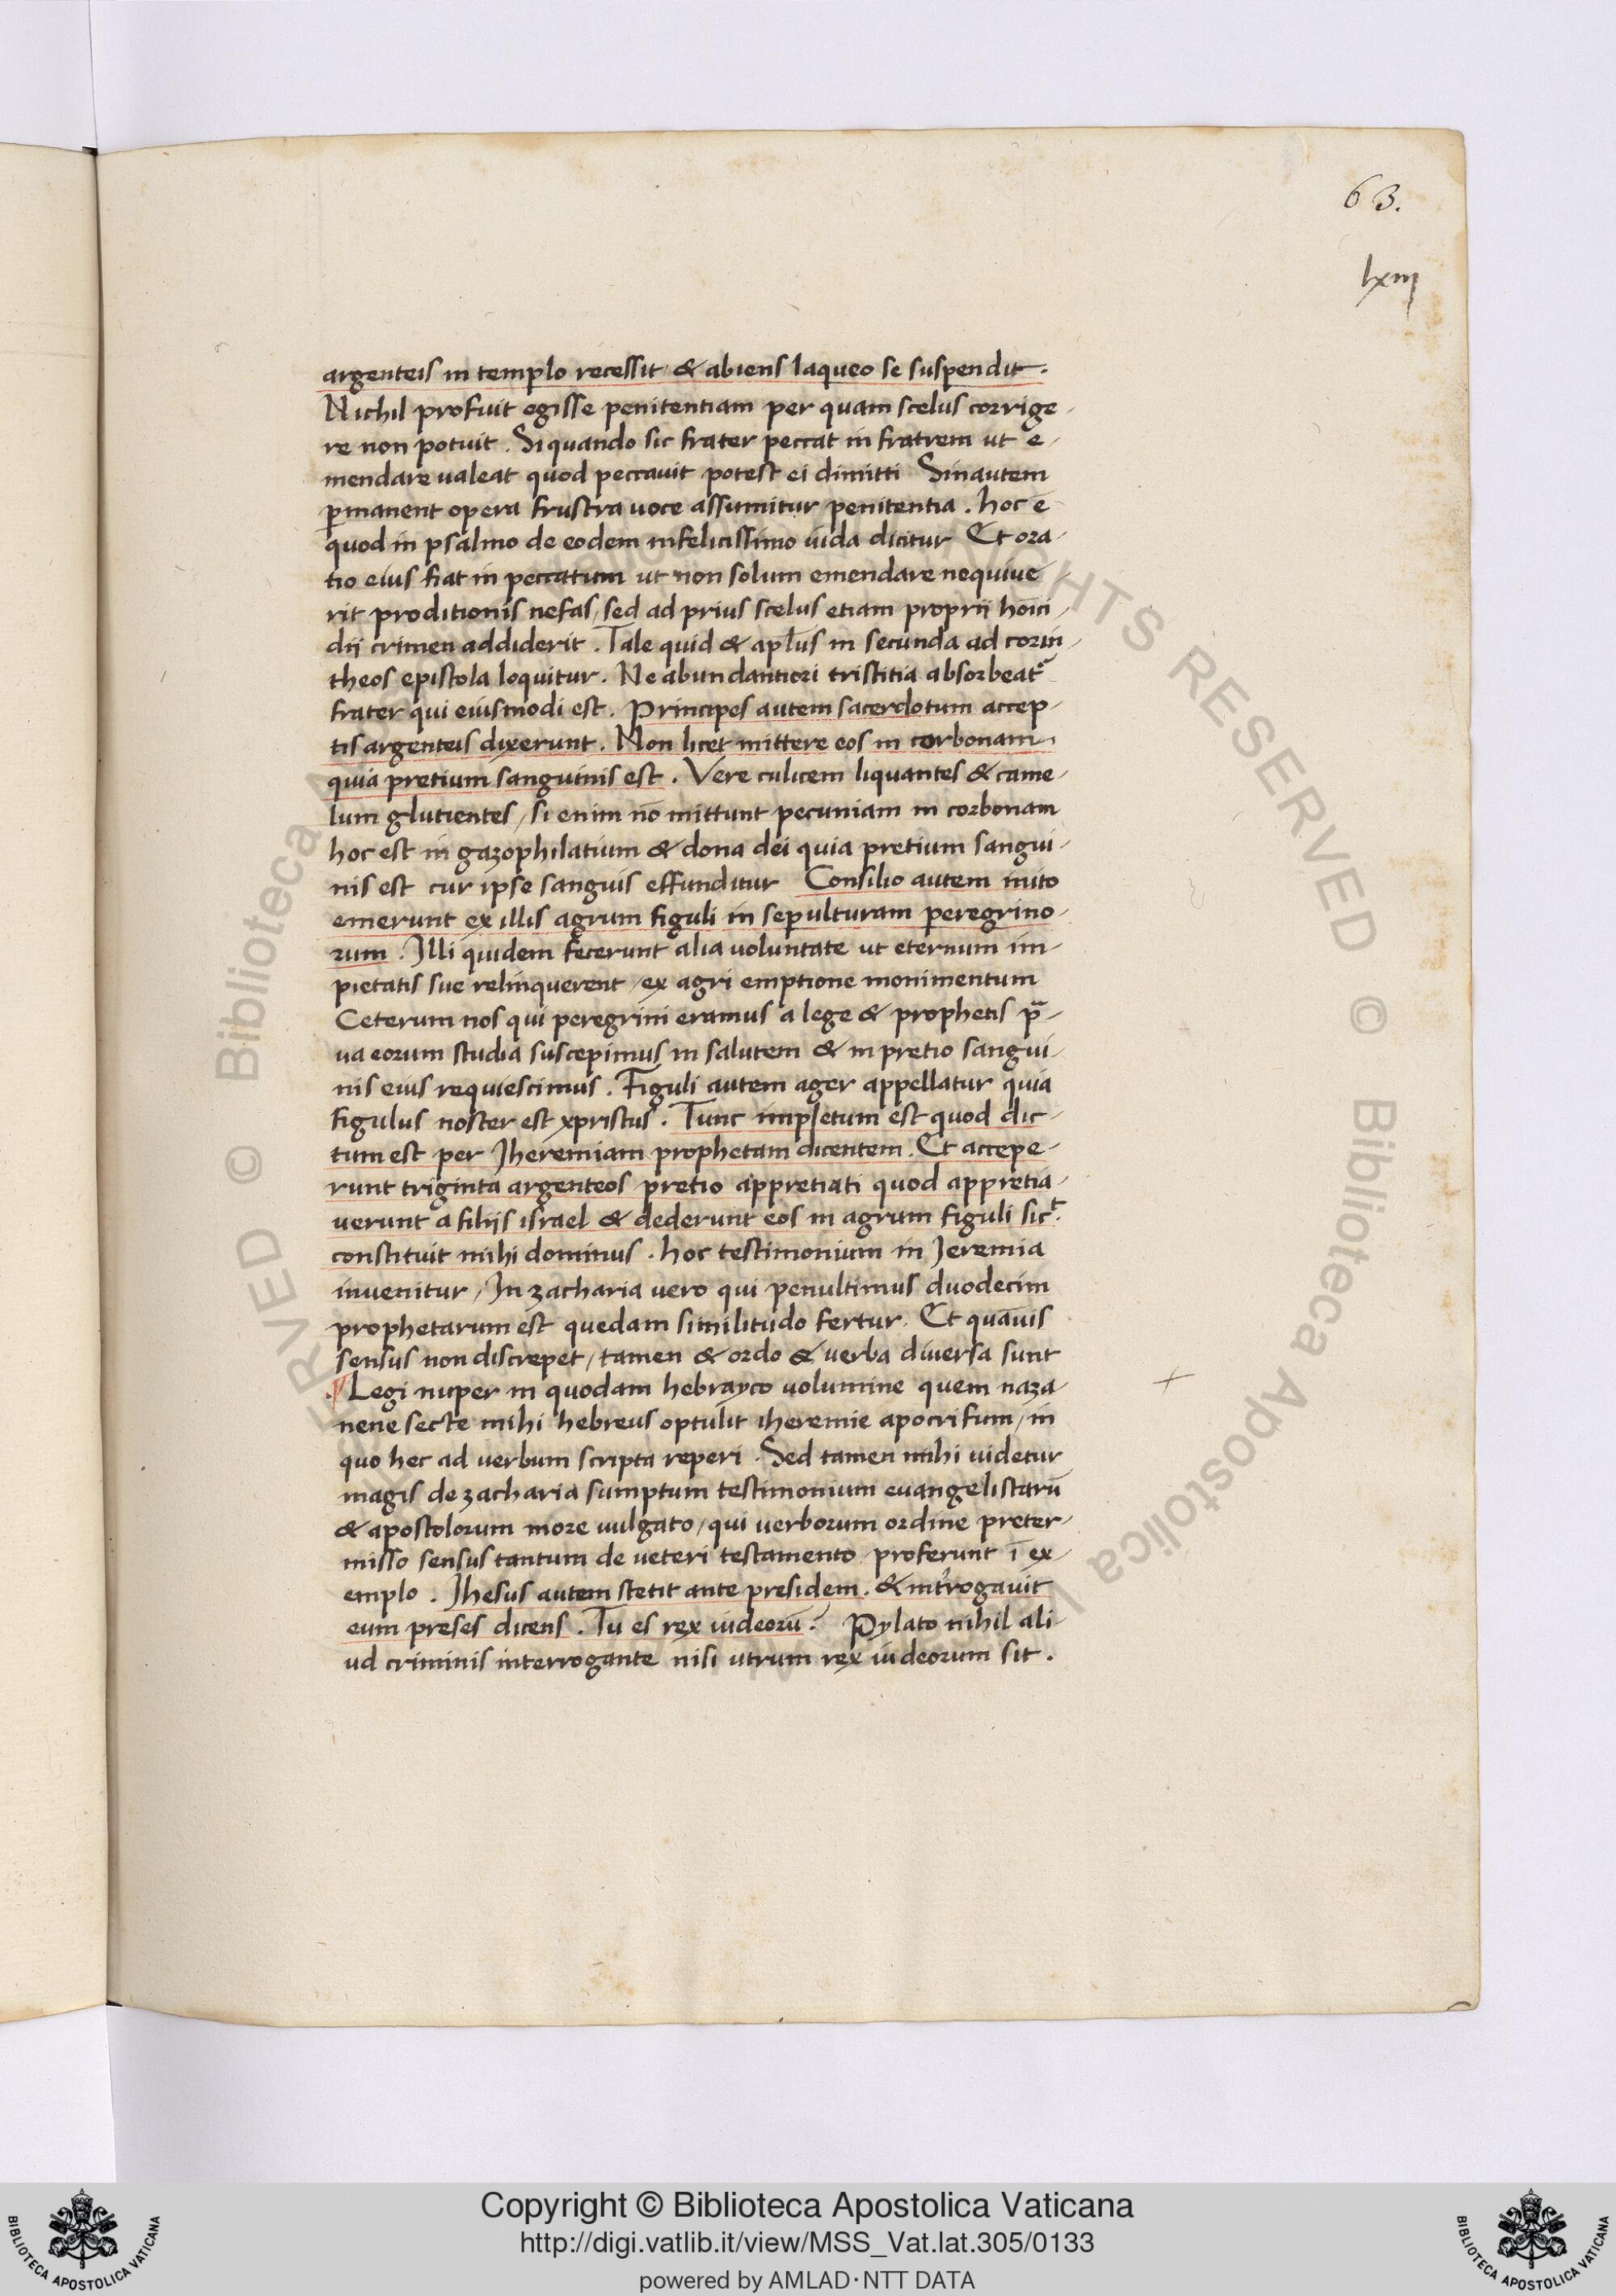 63.
lxiij
argenteis in templo recessit & abiens laqueo se suspendit.
Nichil profuit egisse penitentiam per quam scelus corrige-
re non potuit. Si quando sic frater peccat in fratrem ut e-
mendare ualeat quod peccauit potest ei dimitti Sin autem
p̄manent opera frustra uoce assumitur penitentia. hoc ē
quod in psalmo de eodem infelicissimo iuda dicitur Et ora-
tio eius fiat in peccatum ut non solum emendare nequiue-
rit proditionis nefas, sed ad prius scelus etiam proprii hoīci-
dii crimen addiderit. Tale quid & apl̄us in secunda ad corin-
theos epistola loquitur. Ne abundantiori tristitia absorbeat᷑
frater qui eiusmodi est. Principes autem sacerdotum accep-
tis argenteis dixerunt. Non licet mittere eos in corbonam,
quia pretium sanguinis est. Vere culicem liquantes & came-
lum glutientes, si enim nō mittunt pecuniam in corbonam
hoc est in gazophilatium & dona dei quia pretium sangui-
nis est cur ipse sanguis effunditur Consilio autem inito
emerunt ex illis agrum figuli in sepulturam peregrino-
rum. Illi quidem fecerunt alia uoluntate ut eternum im-
pietatis sue relinquerent, ex agri emptione monimentum
Ceterum nos qui peregrini eramus a lege & prophetis p̄ra-
ua eorum studia suscepimus in salutem & in pretio sangui-
nis eius requiescimus. Figuli autem ager appellatur quia
figulus noster est xpristus. Tunc impletum est quod dic-
tum est per Jheremiam prophetam dicentem. Et accepe-
runt triginta argenteos pretio appretiati quod appretia-
uerunt a filijs israel & dederunt eos in agrum figuli sic᷑ᵗ
constituit mihi dominus. hoc testimonium in Jeremia
inuenitur, In zacharia uero qui penultimus duodecim
prophetarum est quedam similitudo fertur. Et quāuis
sensus non discrepet, tamen & ordo & uerba diuersa sunt
Legi nuper in quodam hebrayco uolumine quem naza-
nene secte mihi hebreus optulit iheremie apocrifum, in
quo hec ad uerbum scripta reperi. Sed tamen mihi uidetur
magis de zacharia sumptum testimonium euangelistarū
& apostolorum more uulgato, qui uerborum ordine preter-
misso sensus tantum de ueteri testamento proferunt ī ex-
emplo. Jhesus autem stetit ante presidem. & int̄rogauit
eum preses dicens. Tu es rex iudeorū? Pylato nihil ali-
ud criminis interrogante nisi utrum rex iudeorum sit.
© Biblioteca Apostolica
RIGHTS RESERVED © Biblioteca Apostolica
Copyright © Biblioteca Apostolica Vaticana
http://digi.vatlib.it/view/MSS_Vat.lat.305/0133
powered by AMLAD · NTT DATA
BIBLIOTECA APOSTOLICA VATICANA
BIBLIOTECA APOSTOLICA VATICANA